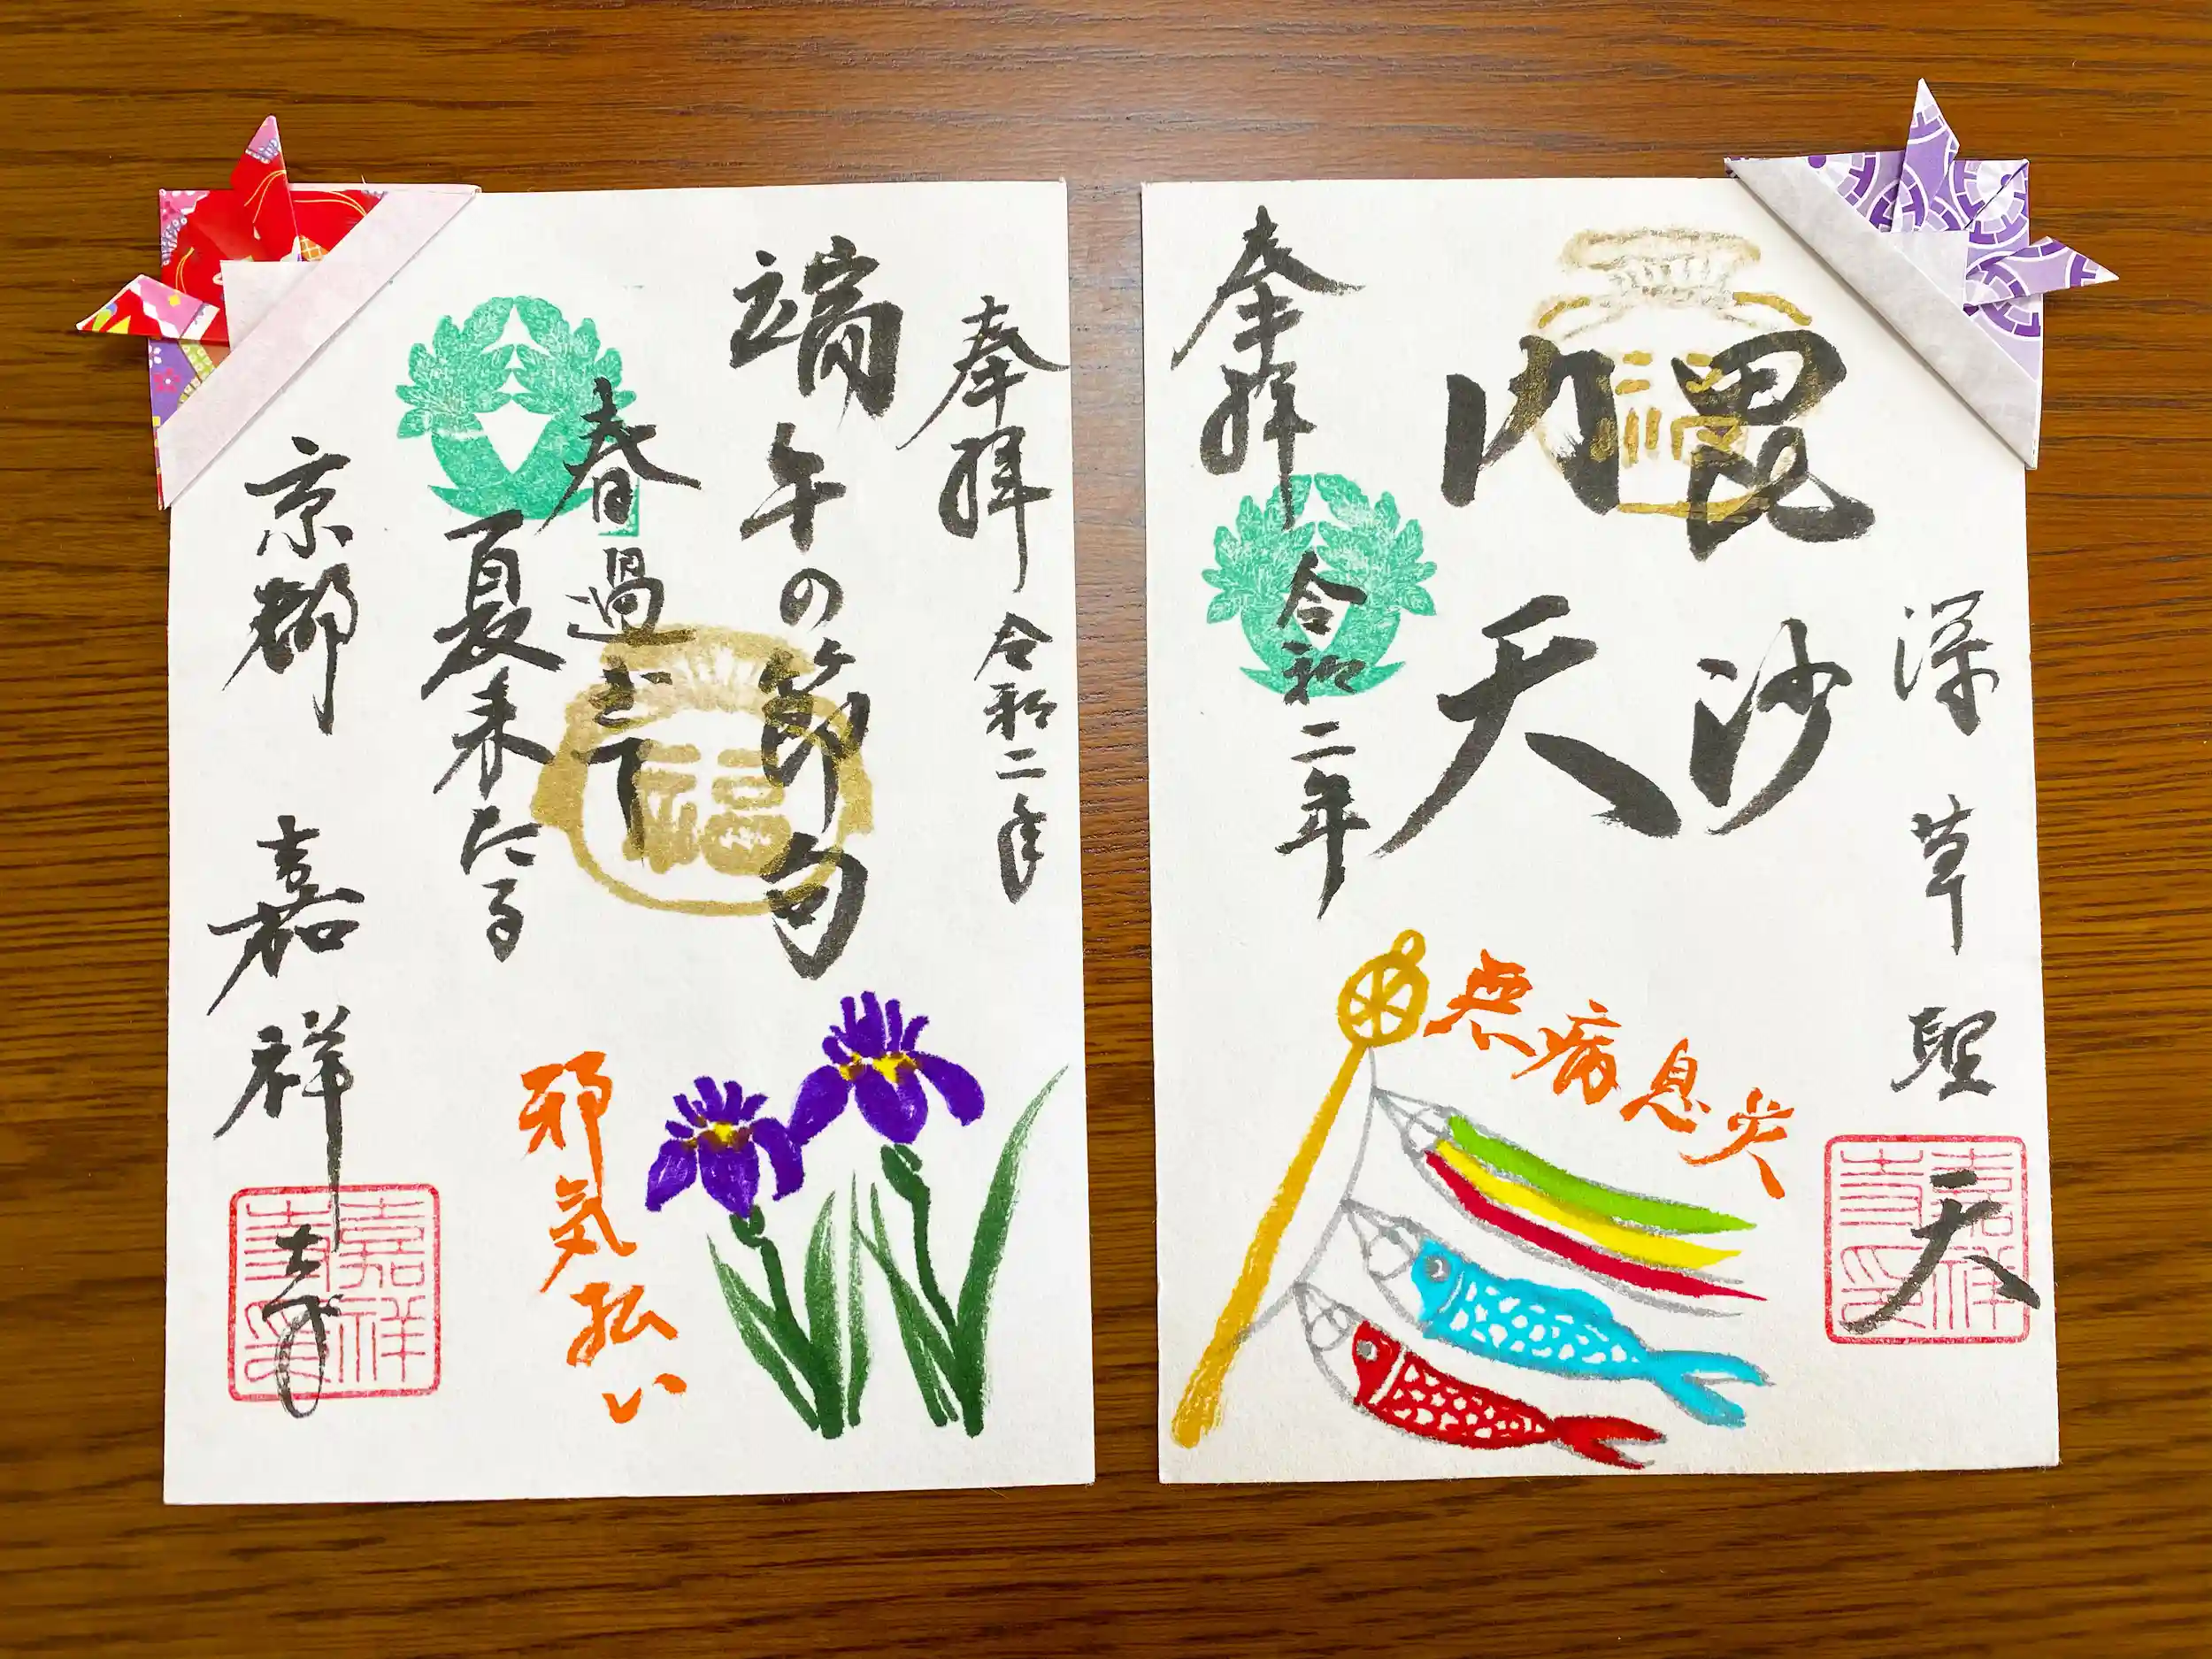 奉拝 令和二年
端午の節句
春過ぎて
夏来たる
福
邪気払い
京都 嘉祥寺
嘉祥
寺印
深草聖天
毘沙
門天
福
奉拝 令和二年
無病息災
嘉祥
寺印